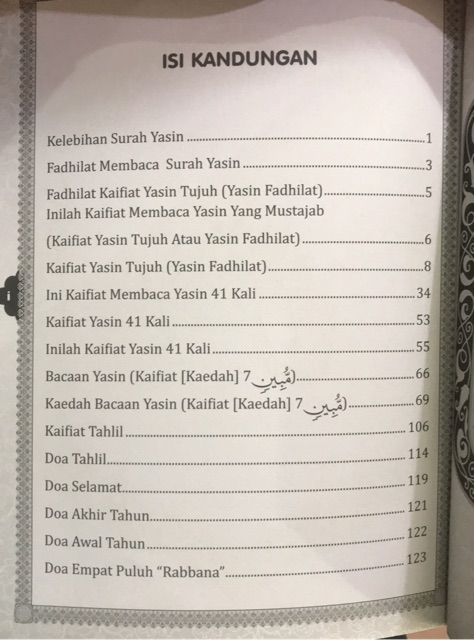 ISI KANDUNGAN
Kelebihan Surah Yasin ........ 1
Fadhilat Membaca Surah Yasin ........ 3
Fadhilat Kaifiat Yasin Tujuh (Yasin Fadhilat) ........ 5
Inilah Kaifiat Membaca Yasin Yang Mustajab
(Kaifiat Yasin Tujuh Atau Yasin Fadhilat) ........ 6
Kaifiat Yasin Tujuh (Yasin Fadhilat) ........ 8
Ini Kaifiat Membaca Yasin 41 Kali ........ 34
Kaifiat Yasin 41 Kali ........ 53
Inilah Kaifiat Yasin 41 Kali ........ 55
Bacaan Yasin (Kaifiat [Kaedah] 7 مُّبِينٍ) ........ 66
Kaedah Bacaan Yasin (Kaifiat [Kaedah] 7 مُّبِينٍ) ........ 69
Kaifiat Tahlil ........ 106
Doa Tahlil ........ 114
Doa Selamat ........ 119
Doa Akhir Tahun ........ 121
Doa Awal Tahun ........ 122
Doa Empat Puluh “Rabbana” ........ 123
i